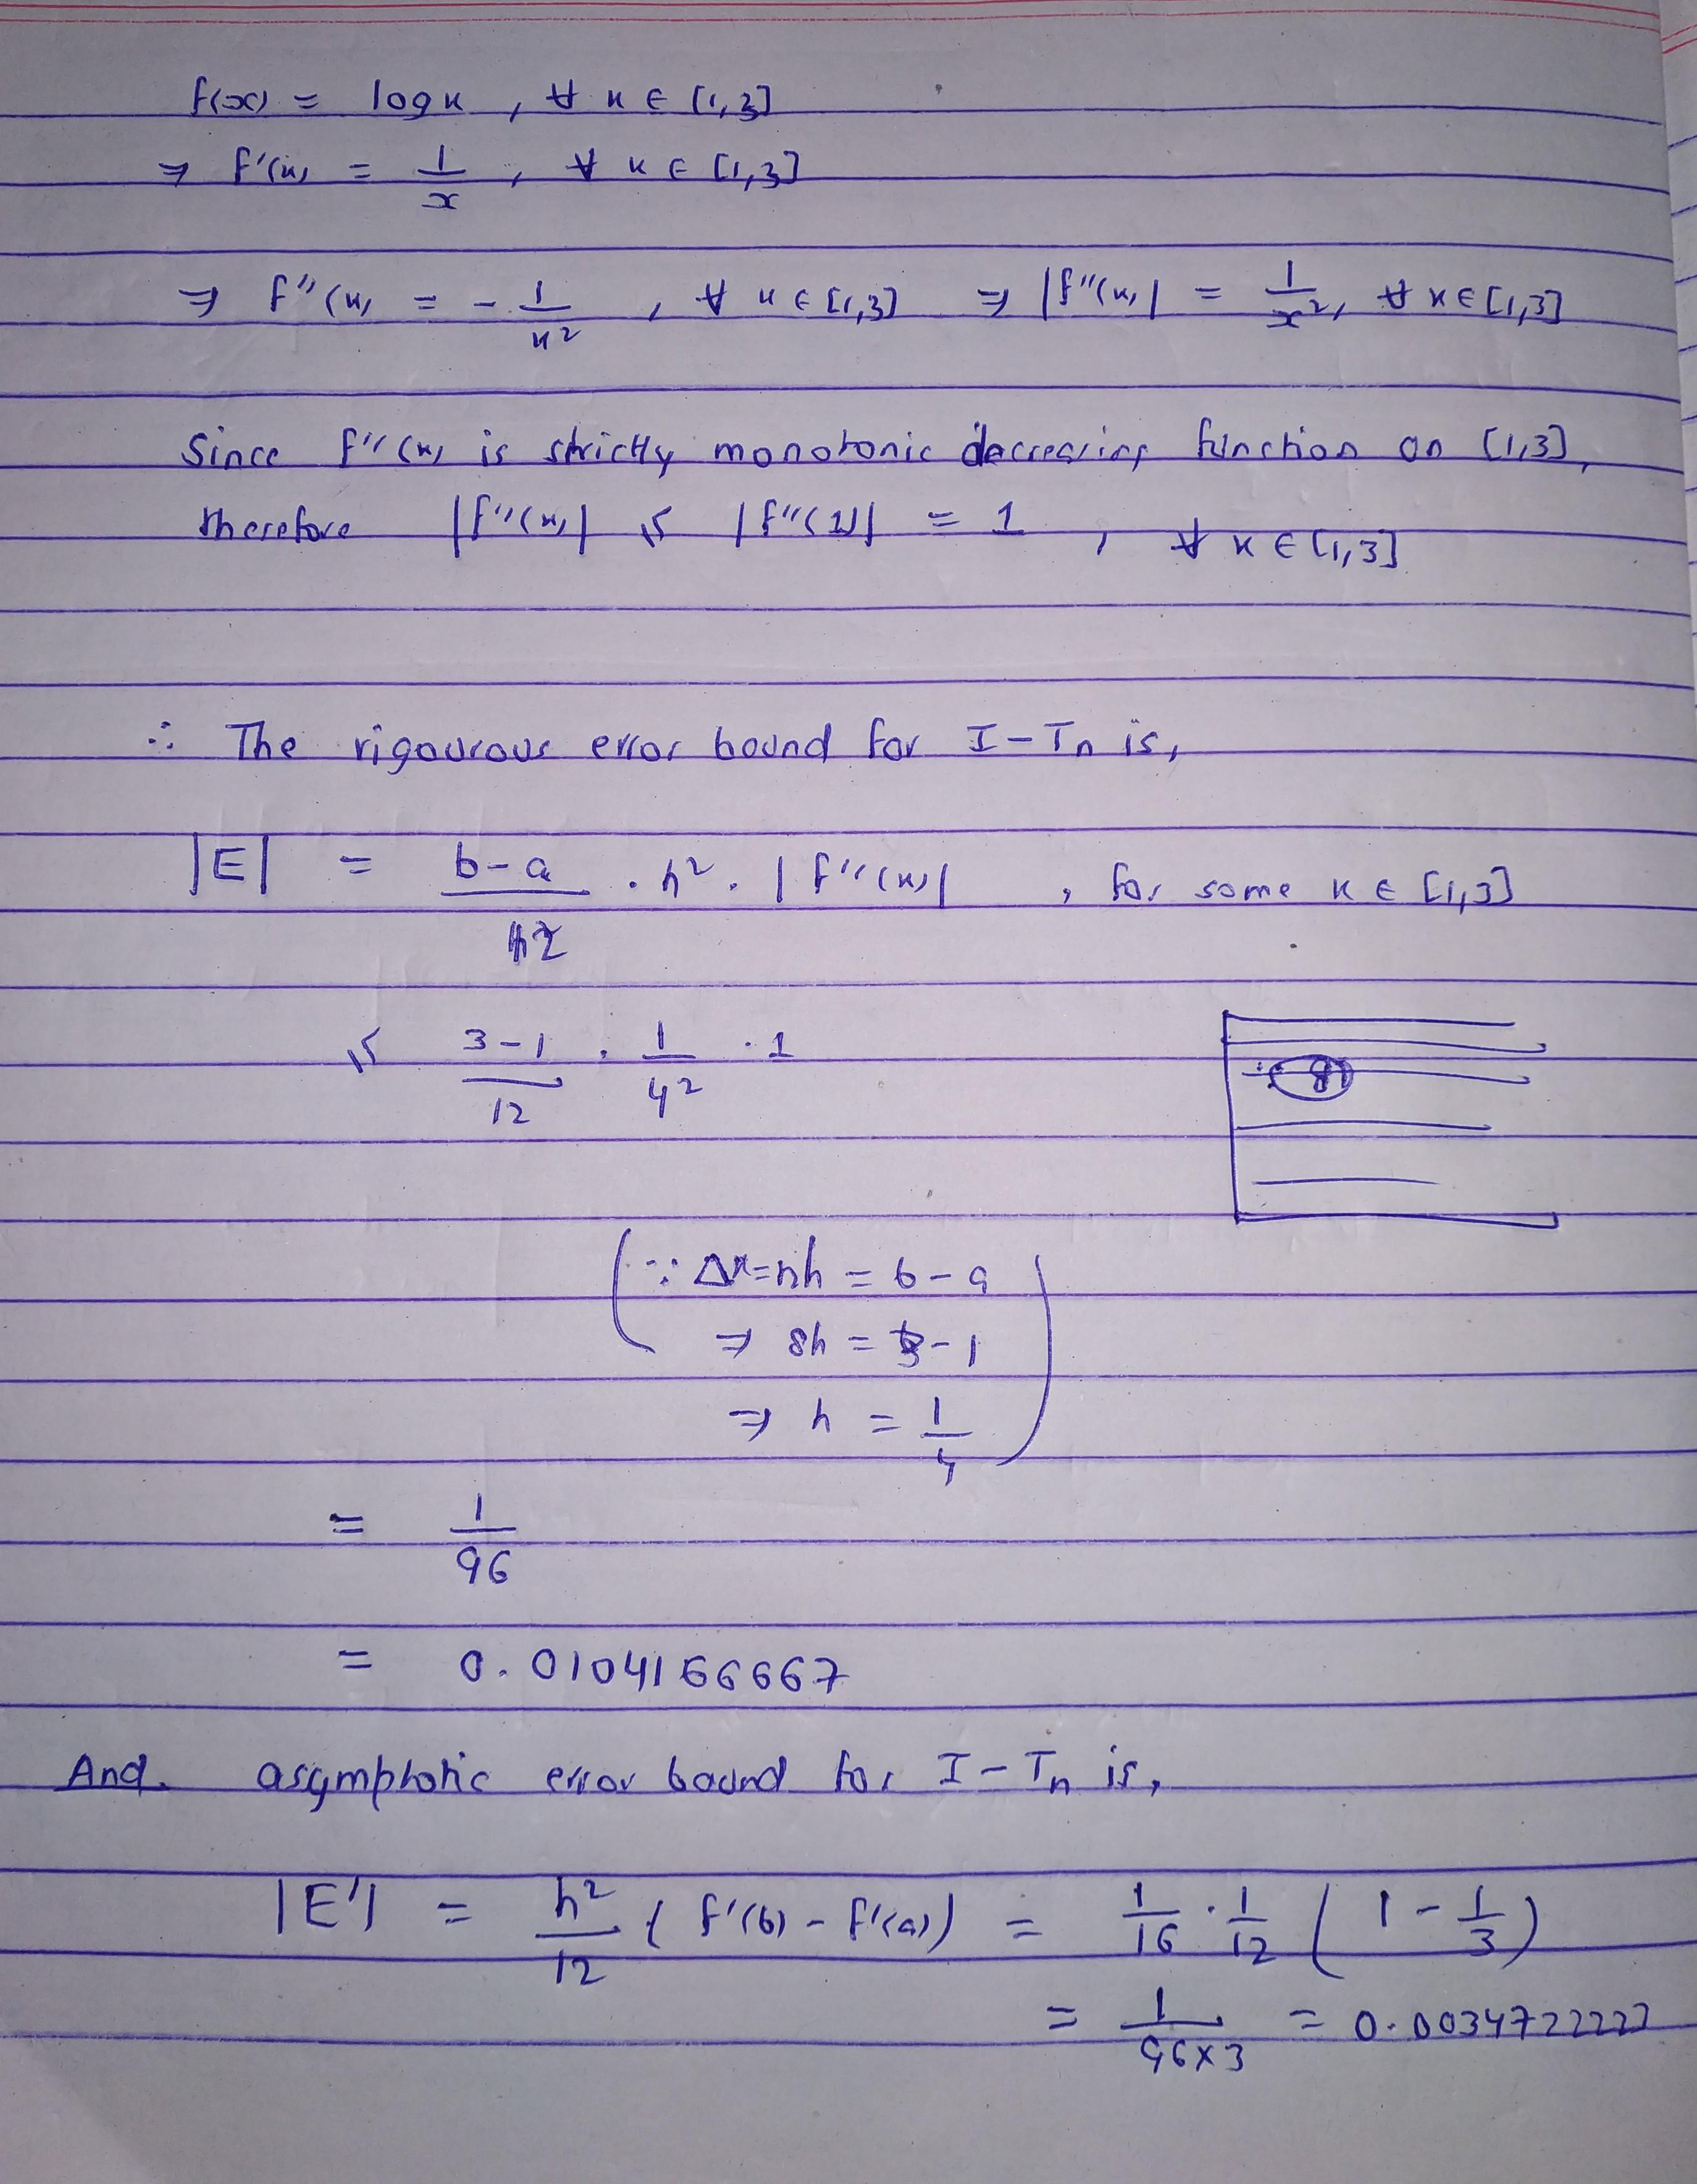 f(x) = log x , ∀ x ∈ [1,3]
⇒ f'(x) = 1/x , ∀ x ∈ [1,3]
⇒ f''(x) = - 1/x² , ∀ x ∈ [1,3] ⇒ |f''(x)| = 1/x², ∀ x ∈ [1,3]
Since f''(x) is strictly monotonic decreasing function on [1,3],
therefore |f''(x)| ≤ |f''(1)| = 1 , ∀ x ∈ [1,3]
∴ The rigourous error bound for I-Tn is,
|E| = (b-a)/12 . h² . |f''(x)| , for some x ∈ [1,3]
≤ (3-1)/12 . 1/4² . 1
(∵ Δx=nh = b-a
⇒ 8h = 3-1
⇒ h = 1/4)
= 1/96
= 0.0104166667
And asymptotic error bound for I-Tn is,
|E'| = h²/12 ( f'(b) - f'(a)) = 1/16 . 1/12 ( 1 - 1/3 )
= 1/(96×3) = 0.0034722222